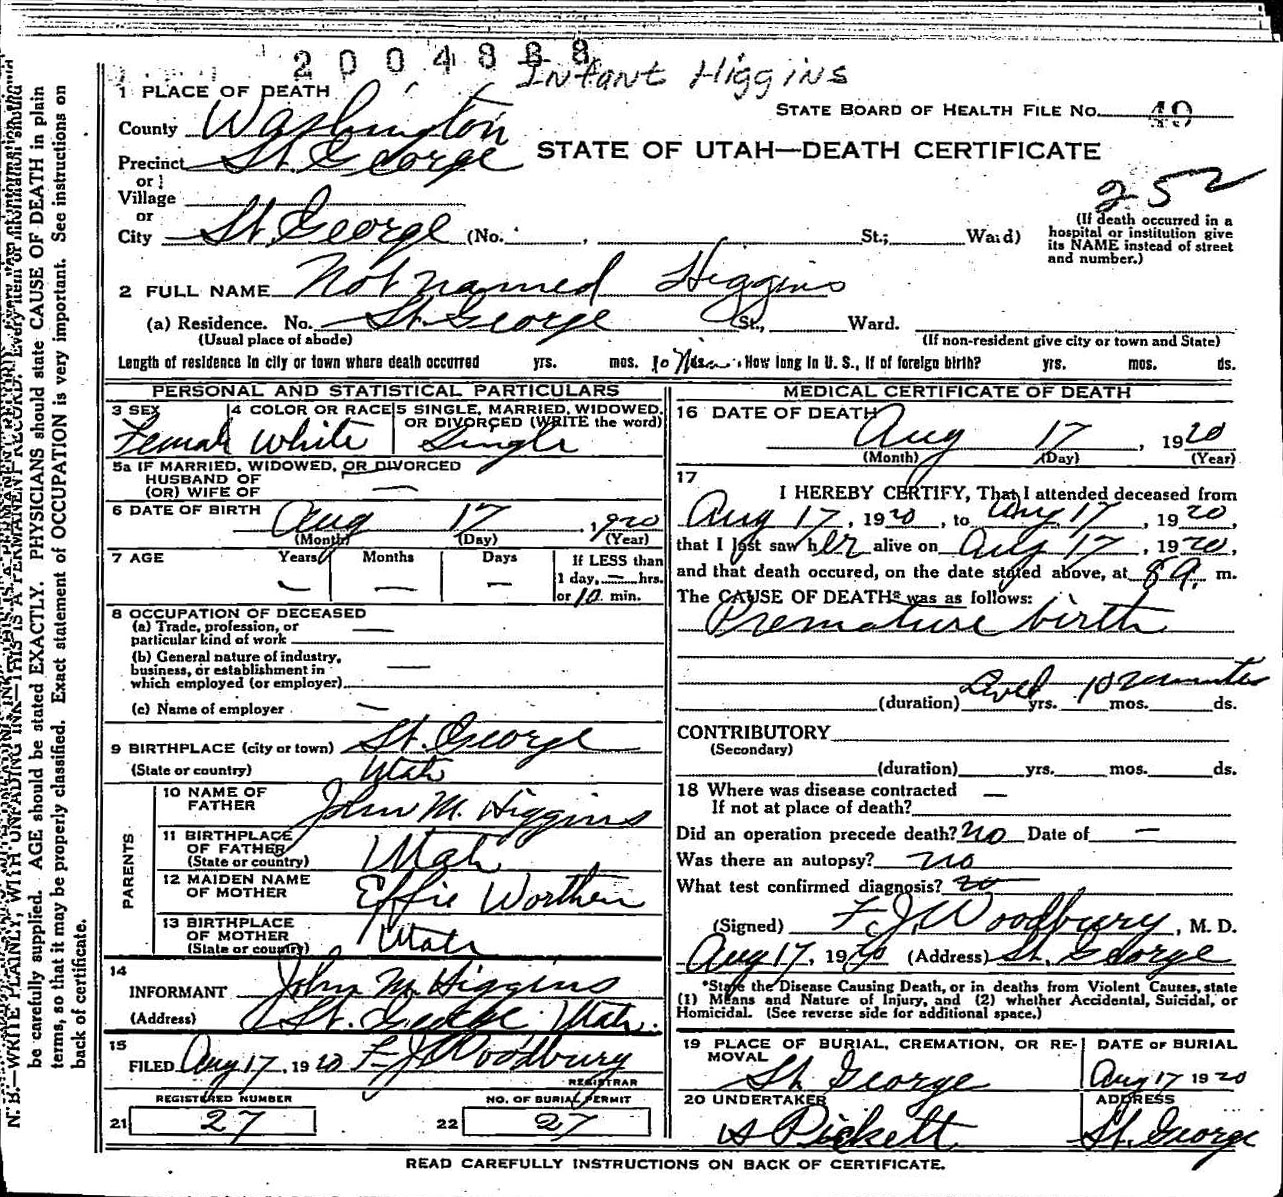 2004888
Infant Higgins
1 PLACE OF DEATH
STATE BOARD OF HEALTH FILE No. 49
County Washington
Precinct St. George
STATE OF UTAH—DEATH CERTIFICATE
or
Village
252
or
City St. George (No. , St.; Ward)
(If death occurred in a hospital or institution give its NAME instead of street and number.)
2 FULL NAME Not named Higgins
(a) Residence. No. St. George (St., Ward.
(Usual place of abode) (If non-resident give city or town and State)
Length of residence in city or town where death occurred yrs. mos. 10 Min. How long in U. S., if of foreign birth? yrs. mos. ds.
PERSONAL AND STATISTICAL PARTICULARS
3 SEX 4 COLOR OR RACE 5 SINGLE, MARRIED, WIDOWED, OR DIVORCED (WRITE the word)
Female White Single
5a IF MARRIED, WIDOWED, OR DIVORCED
HUSBAND OF
(OR) WIFE OF —
6 DATE OF BIRTH Aug 17, 1920
(Month) (Day) (Year)
7 AGE Years Months Days If LESS than
1 day, — hrs.
— — — or 10 min.
8 OCCUPATION OF DECEASED
(a) Trade, profession, or
particular kind of work —
(b) General nature of industry,
business, or establishment in
which employed (or employer) —
(c) Name of employer —
9 BIRTHPLACE (city or town) St. George
(State or country) Utah
PARENTS
10 NAME OF
FATHER John M. Higgins
11 BIRTHPLACE
OF FATHER
(State or country) Utah
12 MAIDEN NAME
OF MOTHER Effie Worthen
13 BIRTHPLACE
OF MOTHER
(State or country) Utah
14
INFORMANT John M Higgins
(Address) St. George Utah.
15
FILED Aug 17, 1920 F J Woodbury
REGISTRAR
REGISTERED NUMBER NO. OF BURIAL PERMIT
21 27 22 27
MEDICAL CERTIFICATE OF DEATH
16 DATE OF DEATH
Aug 17, 1920
(Month) (Day) (Year)
17
I HEREBY CERTIFY, That I attended deceased from
Aug 17, 1920, to Aug 17, 1920,
that I last saw her alive on Aug 17, 1920,
and that death occured, on the date stated above, at 8 a. m.
The CAUSE OF DEATH* was as follows:
Premature birth
(duration) Lived yrs. 10 minutes mos. ds.
CONTRIBUTORY
(Secondary)
(duration) yrs. mos. ds.
18 Where was disease contracted
If not at place of death? —
Did an operation precede death? no Date of —
Was there an autopsy? no
What test confirmed diagnosis? no
(Signed) F. J. Woodbury, M. D.
Aug 17, 1920 (Address) St. George
*State the Disease Causing Death, or in deaths from Violent Causes, state
(1) Means and Nature of Injury, and (2) whether Accidental, Suicidal, or
Homicidal. (See reverse side for additional space.)
19 PLACE OF BURIAL, CREMATION, OR RE- DATE OF BURIAL
MOVAL
St George Aug 17 1920
20 UNDERTAKER ADDRESS
Pickett St. George
READ CAREFULLY INSTRUCTIONS ON BACK OF CERTIFICATE.
N. B.—WRITE PLAINLY, WITH UNFADING INK—THIS IS A PERMANENT RECORD. Every item of information should
be carefully supplied. AGE should be stated EXACTLY. PHYSICIANS should state CAUSE OF DEATH in plain
terms, so that it may be properly classified. Exact statement of OCCUPATION is very important. See instructions on
back of certificate.